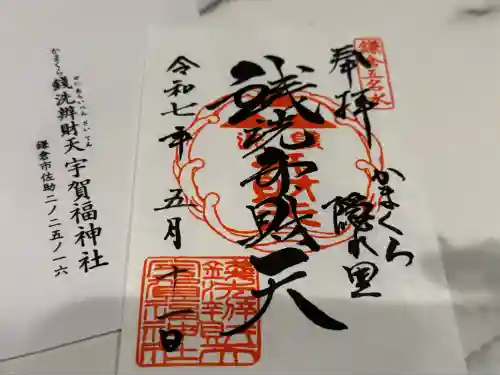 鎌倉五名水
奉拝
かまくら
隠れ里
銭洗弁財天
令和七年
五月
十一日
かまくら ぜにあらいべんざいてん
銭洗辨財天宇賀福神社
鎌倉市佐助二ノ二五ノ一六